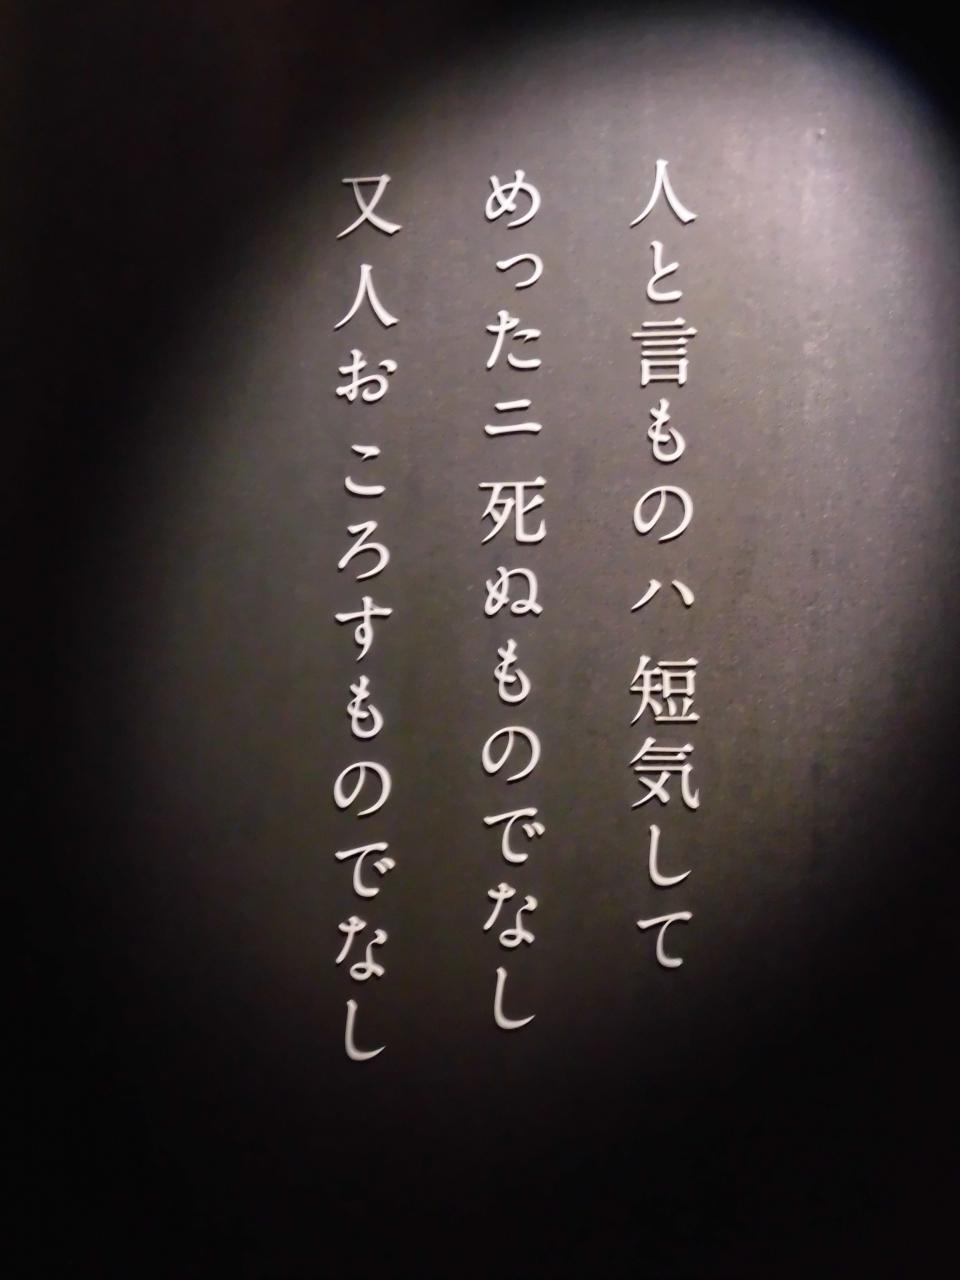 人と言ものハ短気して
めったニ死ぬものでなし
又人おころすものでなし